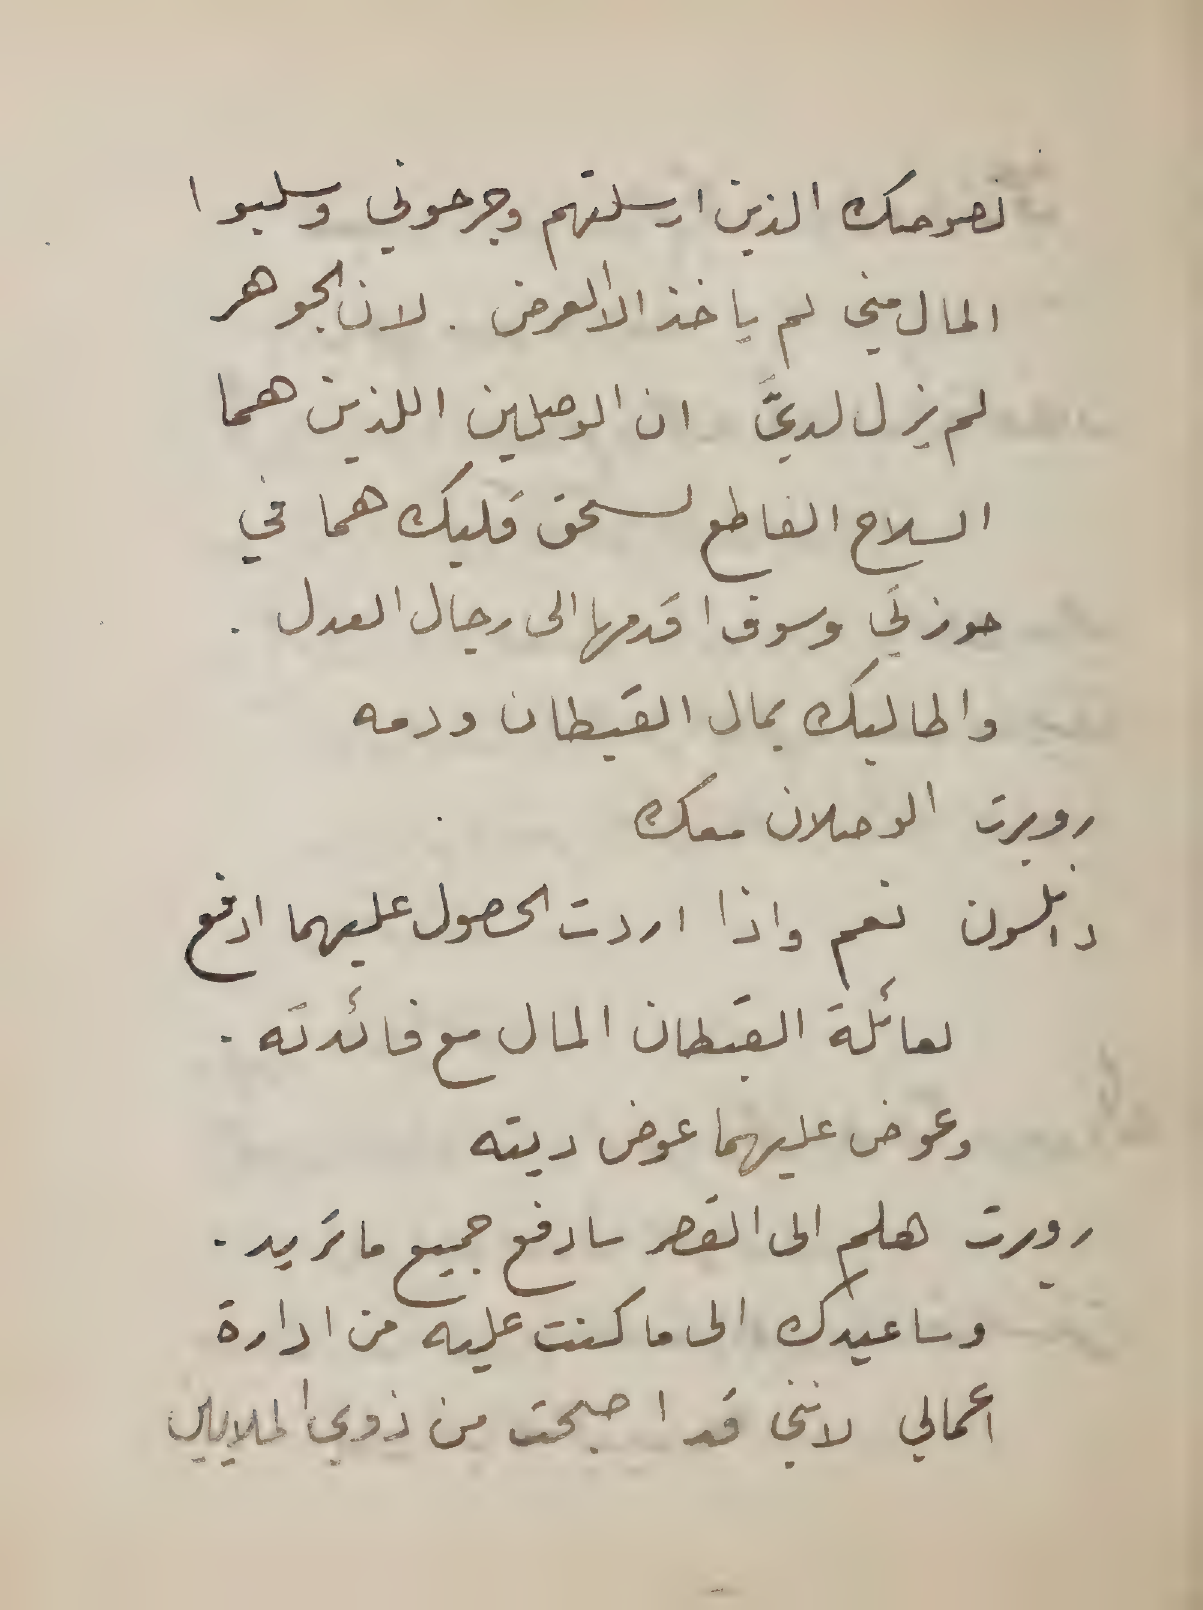 لصوصك الذين ارسلتهم وجرحوني وسلبوا
المال مني لم ياخذ الا العرض . لان الجوهر
لم يزل لديَّ ان الوصلين اللذين هما
السلاح القاطع لسحق قلبك هما في
حوزتي وسوف اقدمها الى رجال العدل .
واطالبك بمال القبطان ودمه
روبرت الوصلان معك
دانلسون نعم واذا اردت الحصول عليهما ادفع
لعائلة القبطان المال مع فائدته .
وعوض عليهما عوض ديته
روبرت هلم الى القصر سادفع جميع ما تريد .
وساعيدك الى ما كنت عليه من ادارة
اعمالي لانني قد اصبحت من ذوي الملايين